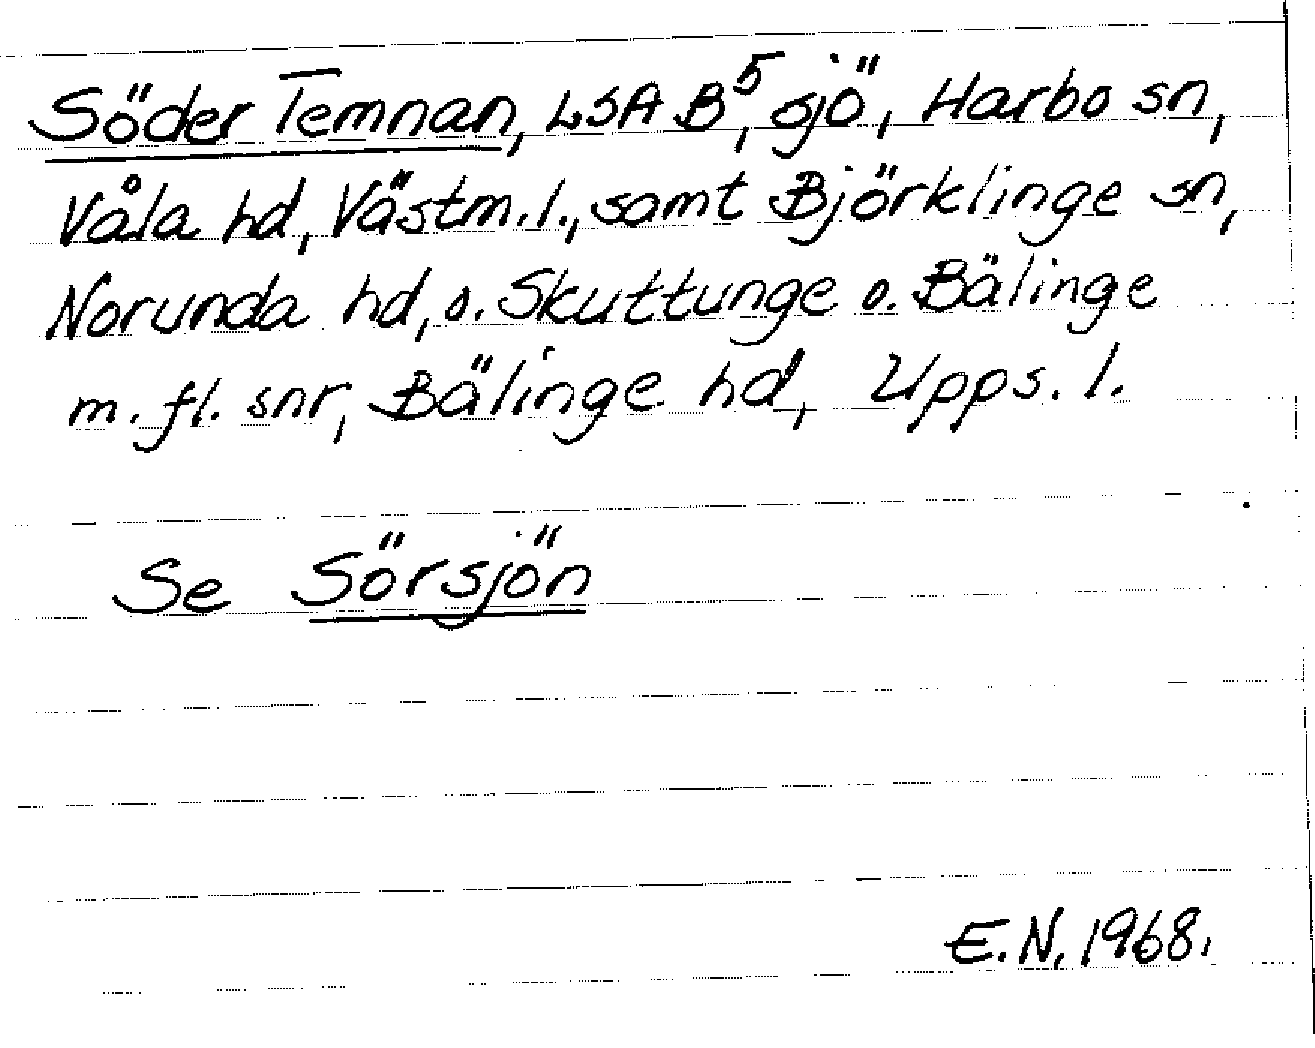 Söder Temnan, LSA B5, sjö, Harbo sn,
Våla hd, Västm. l., samt Björklinge sn,
Norunda hd, o. Skuttunge o. Bälinge
m. fl. snr, Bälinge hd, Upps. l.
Se Sörsjön
E.N. 1968.